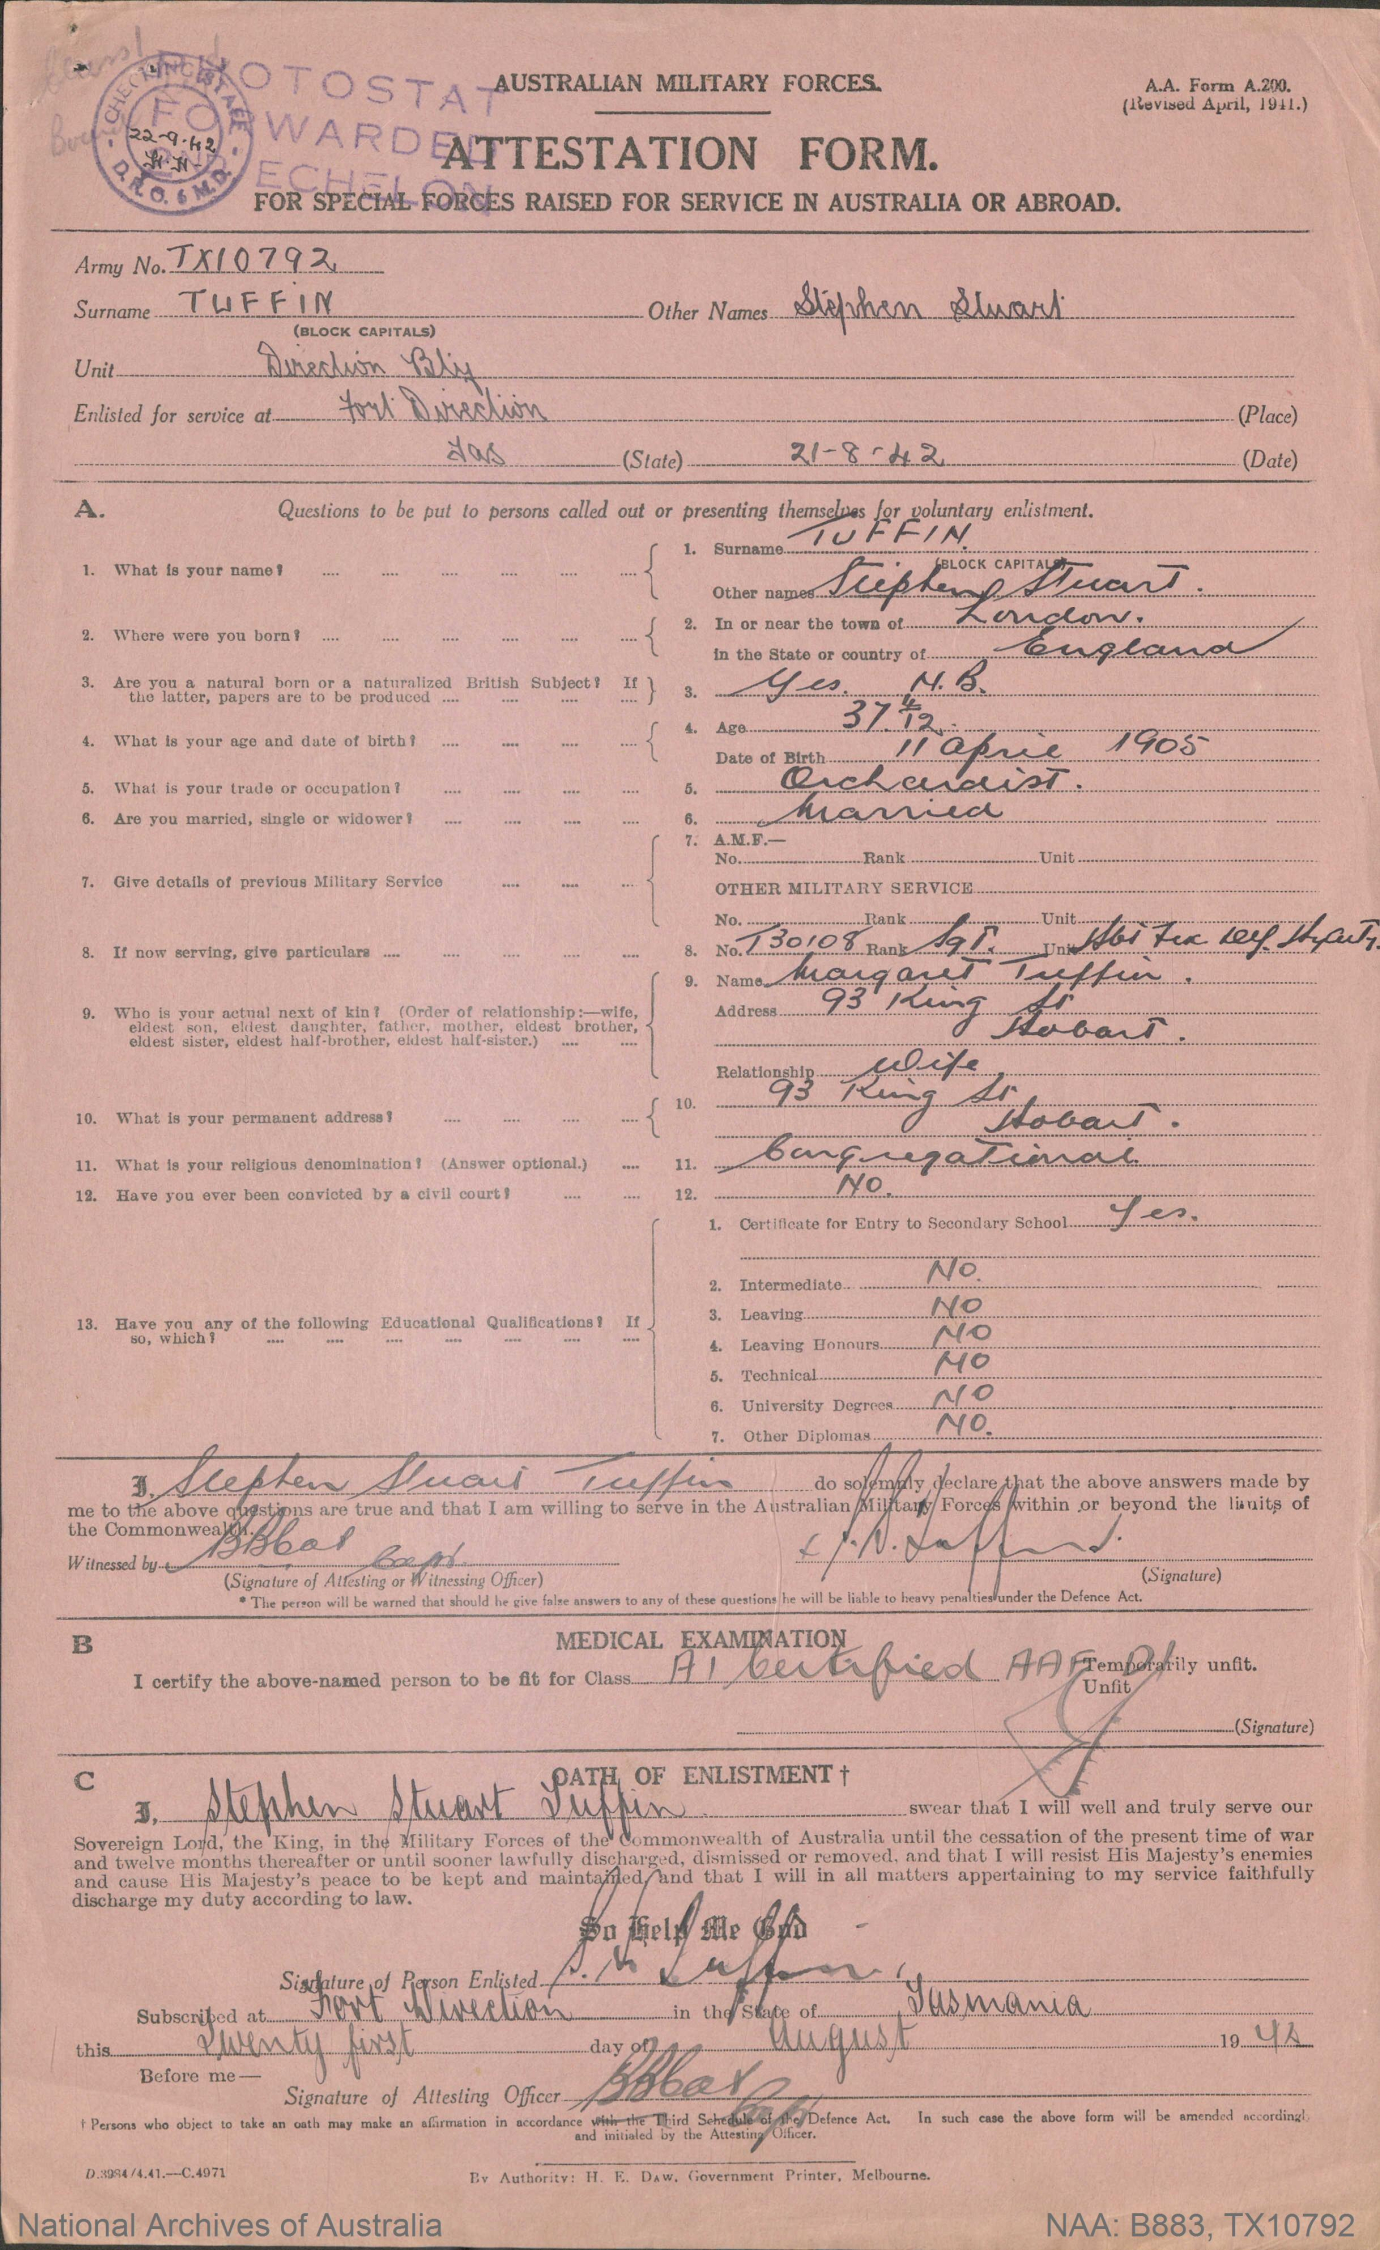 PHOTOSTAT
FORWARDED
ECHELON
CHECKING STAGE
22-9-42
D.R.O. 6 M.D.
AUSTRALIAN MILITARY FORCES.
A.A. Form A.200.
(Revised April, 1941.)
ATTESTATION FORM.
FOR SPECIAL FORCES RAISED FOR SERVICE IN AUSTRALIA OR ABROAD.
Army No. TX10792
Surname TUFFIN Other Names Stephen Stuart
(BLOCK CAPITALS)
Unit Direction Bty
Enlisted for service at Fort Direction (Place)
Tas (State) 21-8-42 (Date)
A. Questions to be put to persons called out or presenting themselves for voluntary enlistment.
1. What is your name? 1. Surname TUFFIN.
(BLOCK CAPITALS)
Other names Stephen Stuart.
2. Where were you born? 2. In or near the town of London.
in the State or country of England
3. Are you a natural born or a naturalized British Subject? If
the latter, papers are to be produced 3. Yes. N.B.
4. What is your age and date of birth? 4. Age 37 4/12.
Date of Birth 11 April 1905
5. What is your trade or occupation? 5. Orchardist.
6. Are you married, single or widower? 6. Married
7. Give details of previous Military Service 7. A.M.F.—
No. Rank Unit
OTHER MILITARY SERVICE
No. Rank Unit
8. If now serving, give particulars 8. No. T30108 Rank Sgt. Unit
9. Who is your actual next of kin? (Order of relationship:—wife,
eldest son, eldest daughter, father, mother, eldest brother,
eldest sister, eldest half-brother, eldest half-sister.)
9. Name Margaret Tuffin.
Address 93 King St
Hobart.
Relationship Wife
10. What is your permanent address? 10. 93 King St
Hobart.
11. What is your religious denomination? (Answer optional.) 11. Congregational
12. Have you ever been convicted by a civil court? 12. NO.
13. Have you any of the following Educational Qualifications? If
so, which?
1. Certificate for Entry to Secondary School Yes.
2. Intermediate NO.
3. Leaving NO
4. Leaving Honours NO
5. Technical NO
6. University Degrees NO
7. Other Diplomas NO.
I, Stephen Stuart Tuffin do solemnly declare that the above answers made by
me to the above questions are true and that I am willing to serve in the Australian Military Forces within or beyond the limits of
the Commonwealth.
Witnessed by Capt.
(Signature of Attesting or Witnessing Officer) (Signature)
* The person will be warned that should he give false answers to any of these questions he will be liable to heavy penalties under the Defence Act.
B MEDICAL EXAMINATION
I certify the above-named person to be fit for Class A1 Certified AAF D1 Temporarily unfit.
Unfit
(Signature)
C OATH OF ENLISTMENT †
I, Stephen Stuart Tuffin swear that I will well and truly serve our
Sovereign Lord, the King, in the Military Forces of the Commonwealth of Australia until the cessation of the present time of war
and twelve months thereafter or until sooner lawfully discharged, dismissed or removed, and that I will resist His Majesty's enemies
and cause His Majesty's peace to be kept and maintained, and that I will in all matters appertaining to my service faithfully
discharge my duty according to law.
So Help Me God
Signature of Person Enlisted
Subscribed at Fort Direction in the State of Tasmania
this Twenty first day of August 1942
Before me—
Signature of Attesting Officer Capt
† Persons who object to take an oath may make an affirmation in accordance with the Third Schedule of the Defence Act. In such case the above form will be amended accordingly
and initialed by the Attesting Officer.
D.3984/4.41.—C.4971
By Authority: H. E. Daw, Government Printer, Melbourne.
National Archives of Australia NAA: B883, TX10792